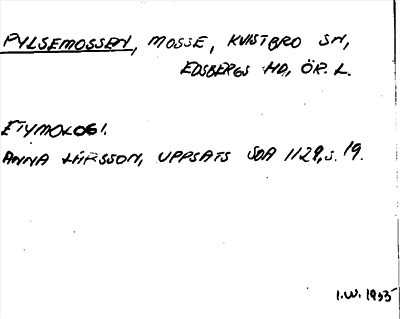 PYLSEMOSSEN, MOSSE, KVISTBRO SN,
EDSBERGS HD, ÖR. L.
ETYMOLOGI.
ANNA LARSSON, UPPSATS SOA 1129, s. 19.
I.W. 1935